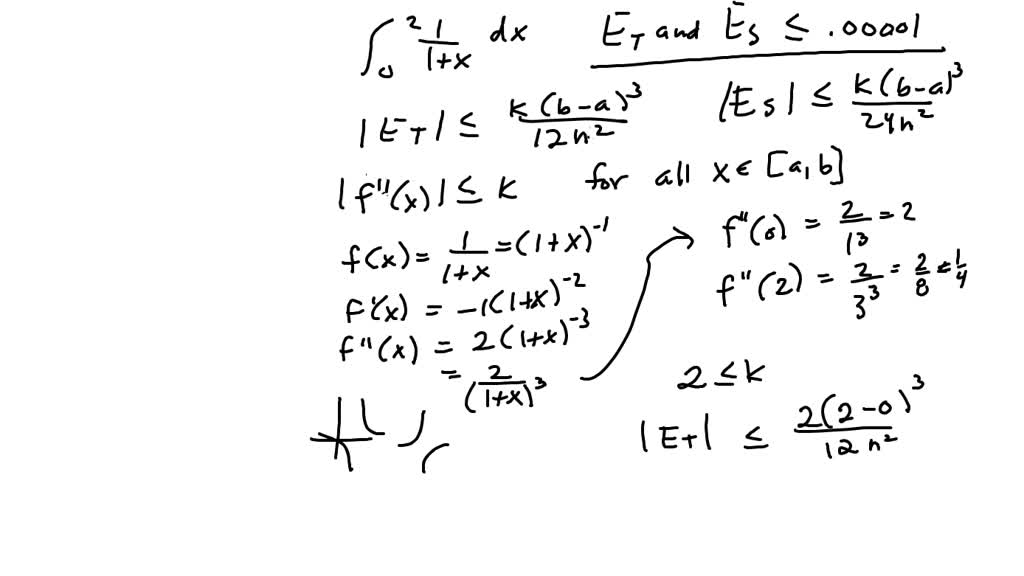 ∫₀² 1/(1+x) dx    E_T and E_S ≤ .00001
|E_T| ≤ k(b-a)³/12n²    |E_S| ≤ k(b-a)³/24n²
|f''(x)| ≤ k    for all x ∈ [a,b]
f(x) = 1/(1+x) = (1+x)⁻¹
f'(x) = -1(1+x)⁻²
f''(x) = 2(1+x)⁻³
= 2/(1+x)³
f''(0) = 2/1³ = 2
f''(2) = 2/3³ = 2/8 = 1/4
2 ≤ k
|E_T| ≤ 2(2-0)³/12n²